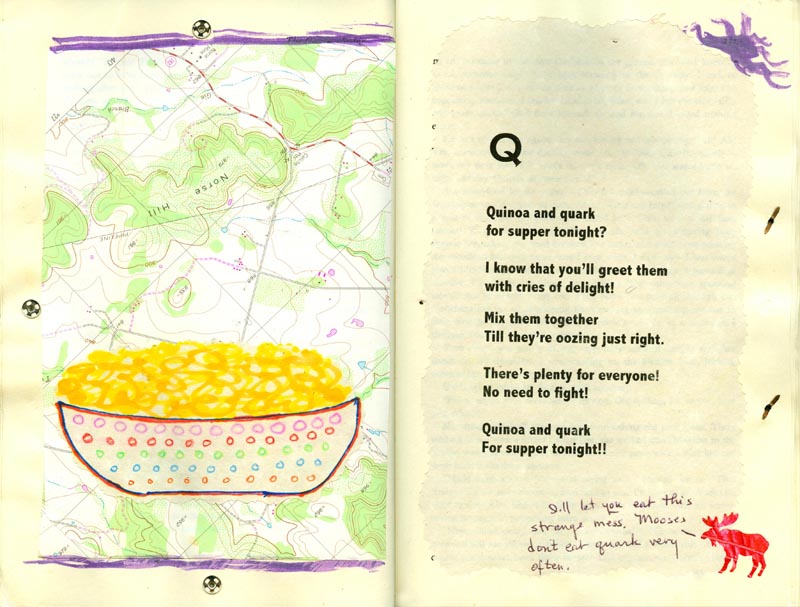 Norse
Hill
Q
Quinoa and quark
for supper tonight?
I know that you'll greet them
with cries of delight!
Mix them together
Till they're oozing just right.
There's plenty for everyone!
No need to fight!
Quinoa and quark
For supper tonight!!
I'll let you eat this
strange mess. Mooses
don't eat quark very
often.